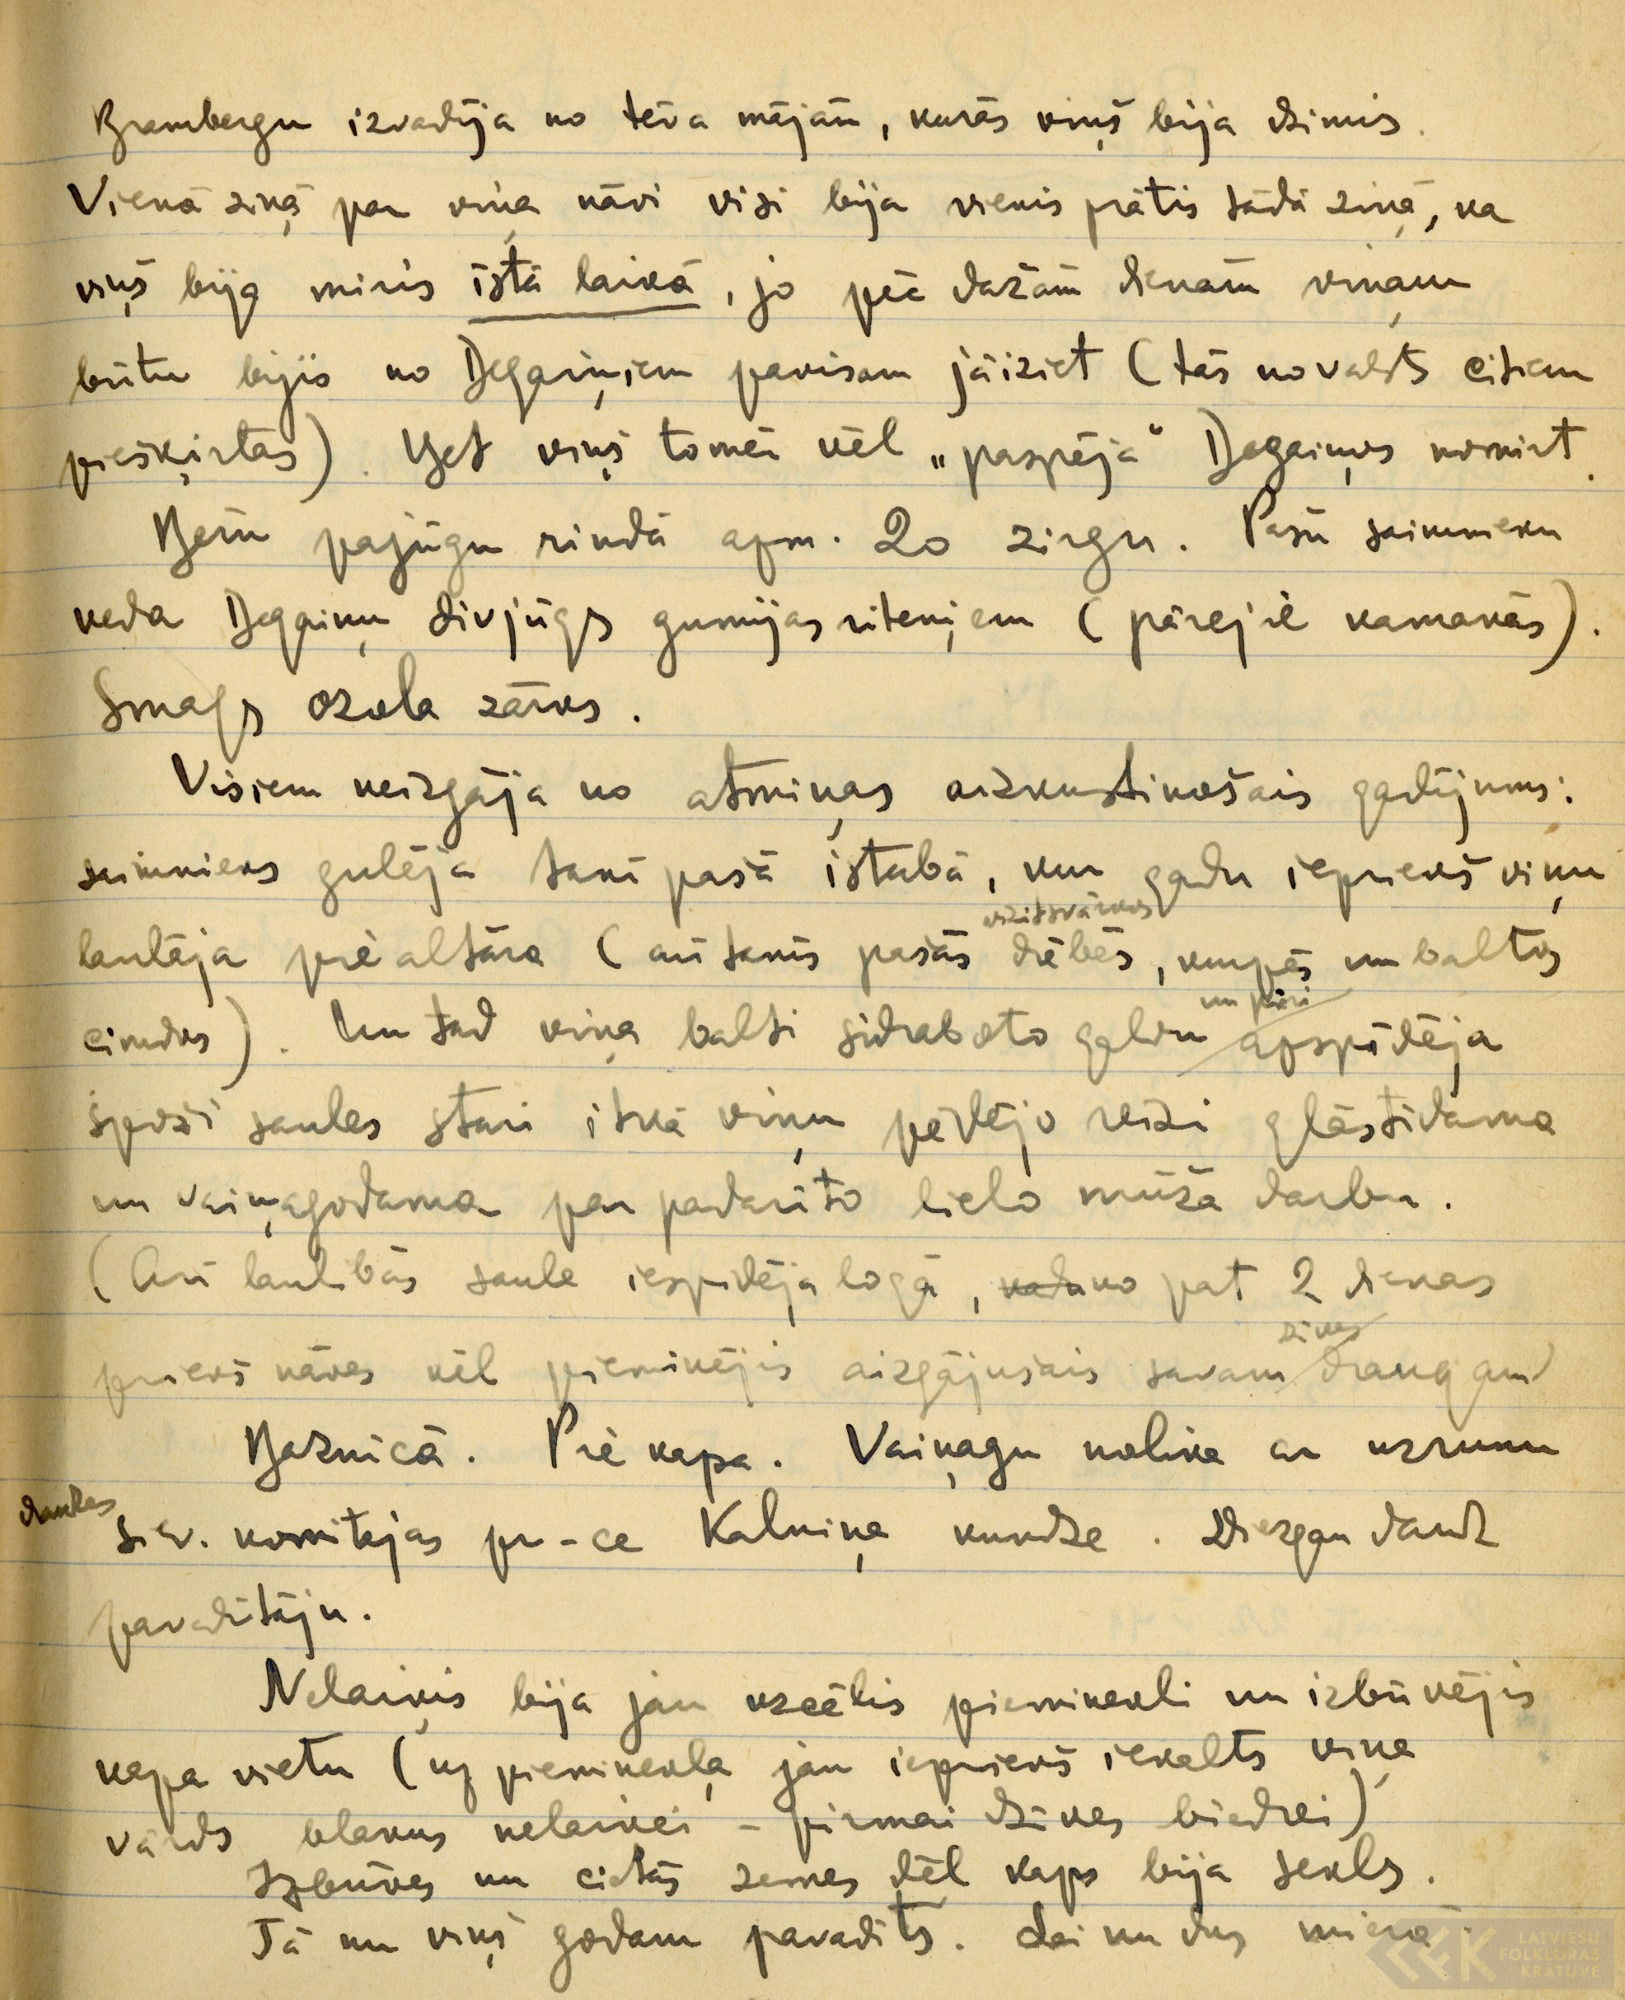 Brambergu izvadīja no tēva mājām, kurās viņš bija dzimis.
Vienā ziņā par viņa nāvi visi bija vienis prātis tādā ziņā, ka
viņš bija miris īstā laikā, jo pēc dažām dienām viņam
būtu bijis no Degaiņiem pavisam jāiziet (tās novalsts citiem
piešķirtas). Bet viņš tomēr vēl „paspēja“ Degaiņos nomirt.
Bēru pajūgu rindā apm. 20 zirgu. Pašu saimnieku
veda Degaiņu divjūgs gumijas riteņiem (pārējie kamanās).
Smags ozola zārks.
Visiem neizgāja no atmiņas aizkustinošais gadījums:
saimnieks gulēja tanī pašā istabā, kur gadu iepriekš viņu
vizītsvārkos
laulāja pie altāra (arī tanīs pašās drēbēs, kurpēs un baltos
un pāri
cimdos). Un tad viņa balti sidraboto galvu apspīdēja
spoži saules stari itkā viņu pēdējo reizi glāstīdama
un vaiņagodama par padarīto lielo mūža darbu.
(Arī laulībās saule iespīdēja logā, ko pat 2 dienas
priekš nāves vēl pieminējis aizgājušais savam draugam)
Baznīcā. Pie kapa. Vaiņagu nolika ar uzrunu
draudzes
siev. komitejas pr-ce Kalniņa kundze. Diezgan daudz
pavadītāju.
Nelaiķis bija jau uzcēlis pieminekli un izbūvējis
kapa vietu (uz pieminekļa jau iepriekš iekalts viņa
vārds blakus nelaiķei - pirmai dzīves biedrei)
Izbūves un cietās zemes dēļ kaps bija sekls.
Tā nu viņš godam pavadīts. Lai nu dus mierā.
LATVIEŠU
FOLKLORAS
KRĀTUVE